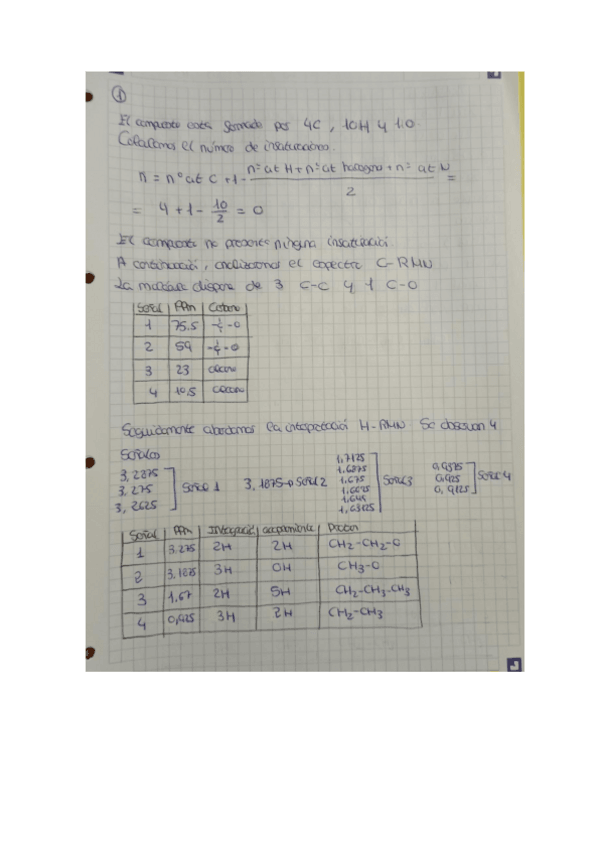 1
El compuesto está formado por 4C, 10H y 1O.
Calculamos el número de insaturaciones.
n = nº at C + 1 - nº at H + nº at halogeno + nº at N / 2 =
= 4 + 1 - 10/2 = 0
El compuesto no presenta ninguna insaturació.
A continuació, analizamos el espectro C-RMN
La molécula dispone de 3 C-C y 1 C-O
Señal PPm
1 75.5 -C-O
2 59 -C-O
3 23
4 10.5
Seguidamente abordamos la interpretació H-RMN Se observan 4
señales
3,2875
3,275 Señal 1
3,2625
3,1875 → Señal 2
1,7125
1,6875
1,675 Señal 3
1,6625
1,649
1,63125
0,9375
0,925 Señal 4
0,9125
Señal PPm Integració acoplamiento
1 3.275 2H 2H CH2-CH2-O
2 3,1875 3H 0H CH3-O
3 1,67 2H 5H CH2-CH2-CH3
4 0,925 3H 2H CH2-CH3